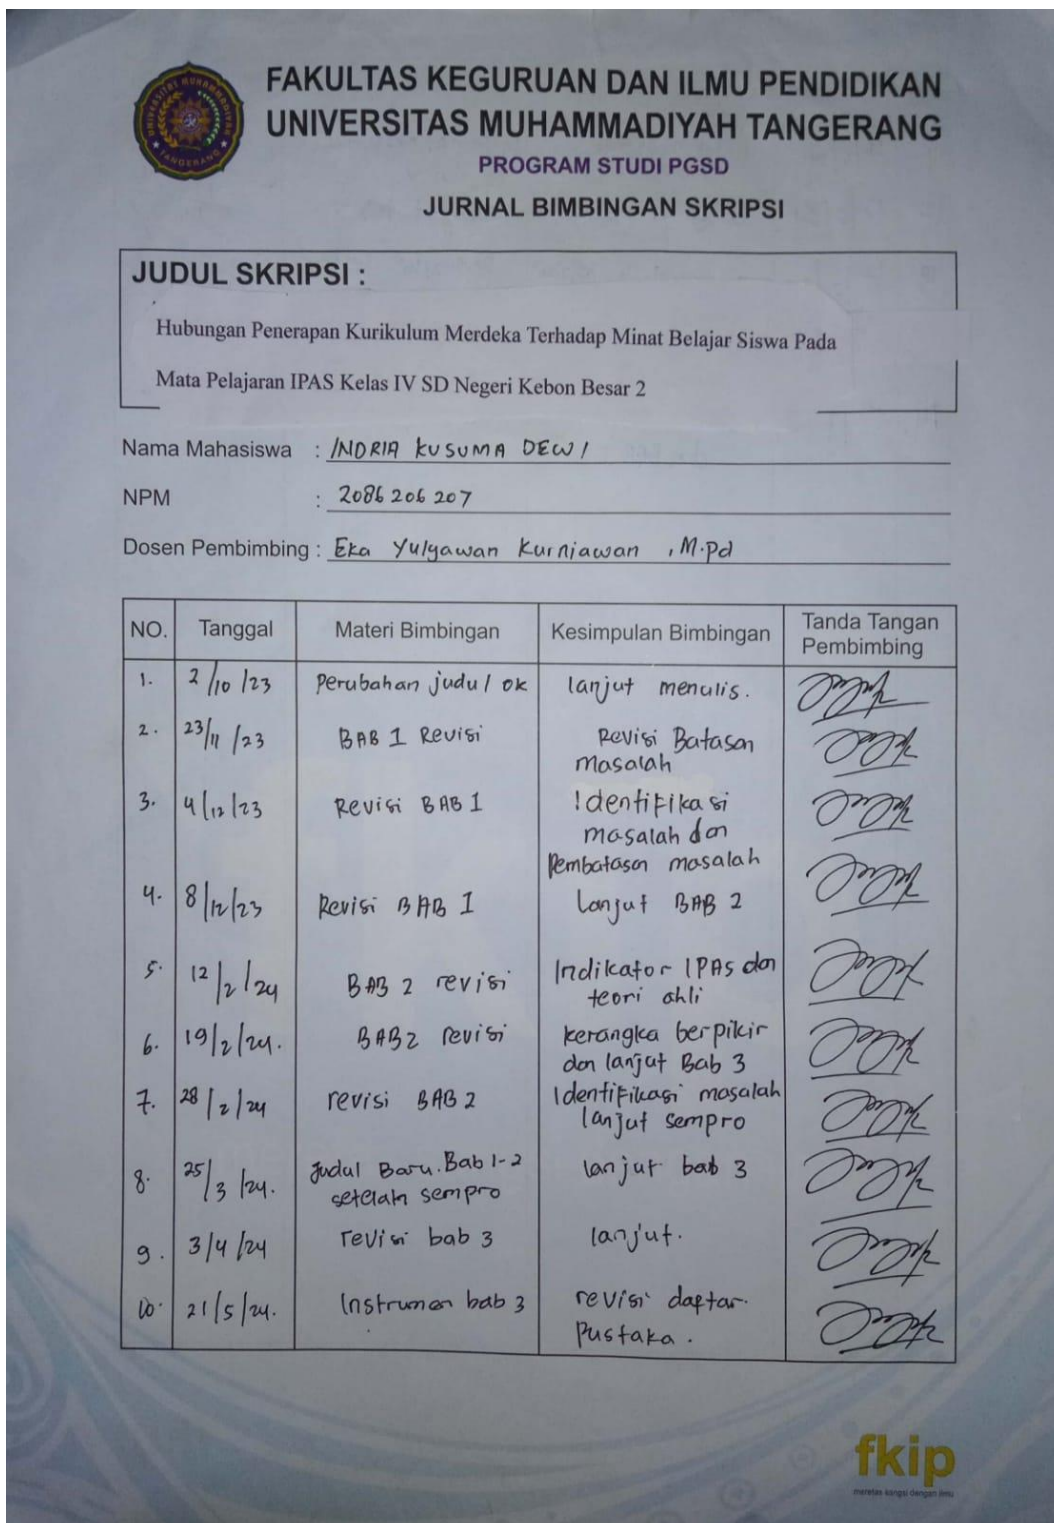 FAKULTAS KEGURUAN DAN ILMU PENDIDIKAN
UNIVERSITAS MUHAMMADIYAH TANGERANG
PROGRAM STUDI PGSD
JURNAL BIMBINGAN SKRIPSI
JUDUL SKRIPSI :
Hubungan Penerapan Kurikulum Merdeka Terhadap Minat Belajar Siswa Pada
Mata Pelajaran IPAS Kelas IV SD Negeri Kebon Besar 2
Nama Mahasiswa : INDRIA KUSUMA DEWI
NPM : 2086206207
Dosen Pembimbing : Eka Yulyawan Kurniawan , M.Pd
NO. Tanggal Materi Bimbingan Kesimpulan Bimbingan Tanda Tangan Pembimbing
1. 2/10/23 Perubahan judul ok lanjut menulis.
2. 23/11/23 BAB 1 Revisi Revisi Batasan
masalah
3. 4/12/23 Revisi BAB 1 Identifikasi
masalah dan
Pembatasan masalah
4. 8/12/23 Revisi BAB 1 Lanjut BAB 2
5. 12/2/24 BAB 2 revisi Indikator IPAS dan
teori ahli
6. 19/2/24. BAB2 revisi kerangka berpikir
dan lanjut Bab 3
7. 28/2/24 revisi BAB 2 Identifikasi masalah
lanjut sempro
8. 25/3/24. Judul Baru. Bab 1-2 lanjut bab 3
setelah sempro
9. 3/4/24 revisi bab 3 lanjut.
10. 21/5/24. Instrumen bab 3 revisi daftar
Pustaka.
fkip
meretas bangsa dengan ilmu